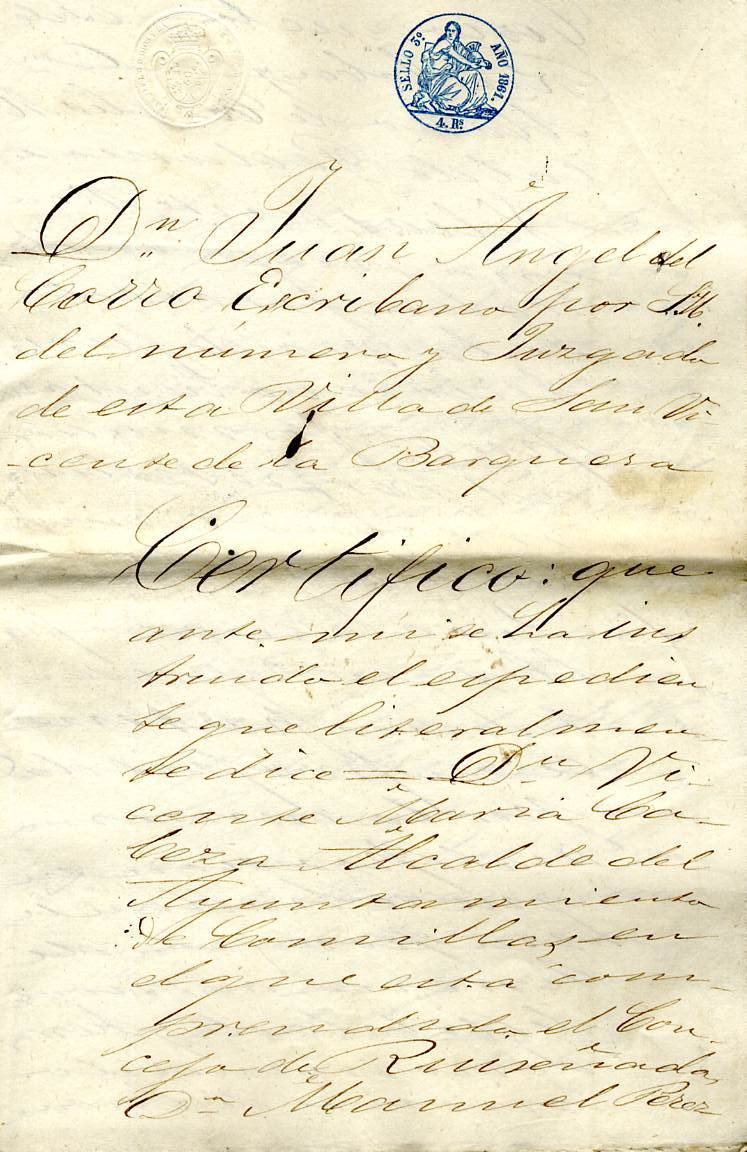 SELLO 3º AÑO 1861.
4. Rs
Dn. Juan Angel del
Corro Escribano por S.M.
del número y Juzgado
de esta Villa de San Vi-
-cente de la Barquera
Certifico: que
ante mi se ha ins
truido el espedien
te que literalmen-
te dice = Dn Vi-
cente Maria Ca-
beza Alcalde del
Ayuntamiento
de Comillas, en
el que está com-
prendido el Con-
cejo de Ruiseñada,
Dn Manuel Perez